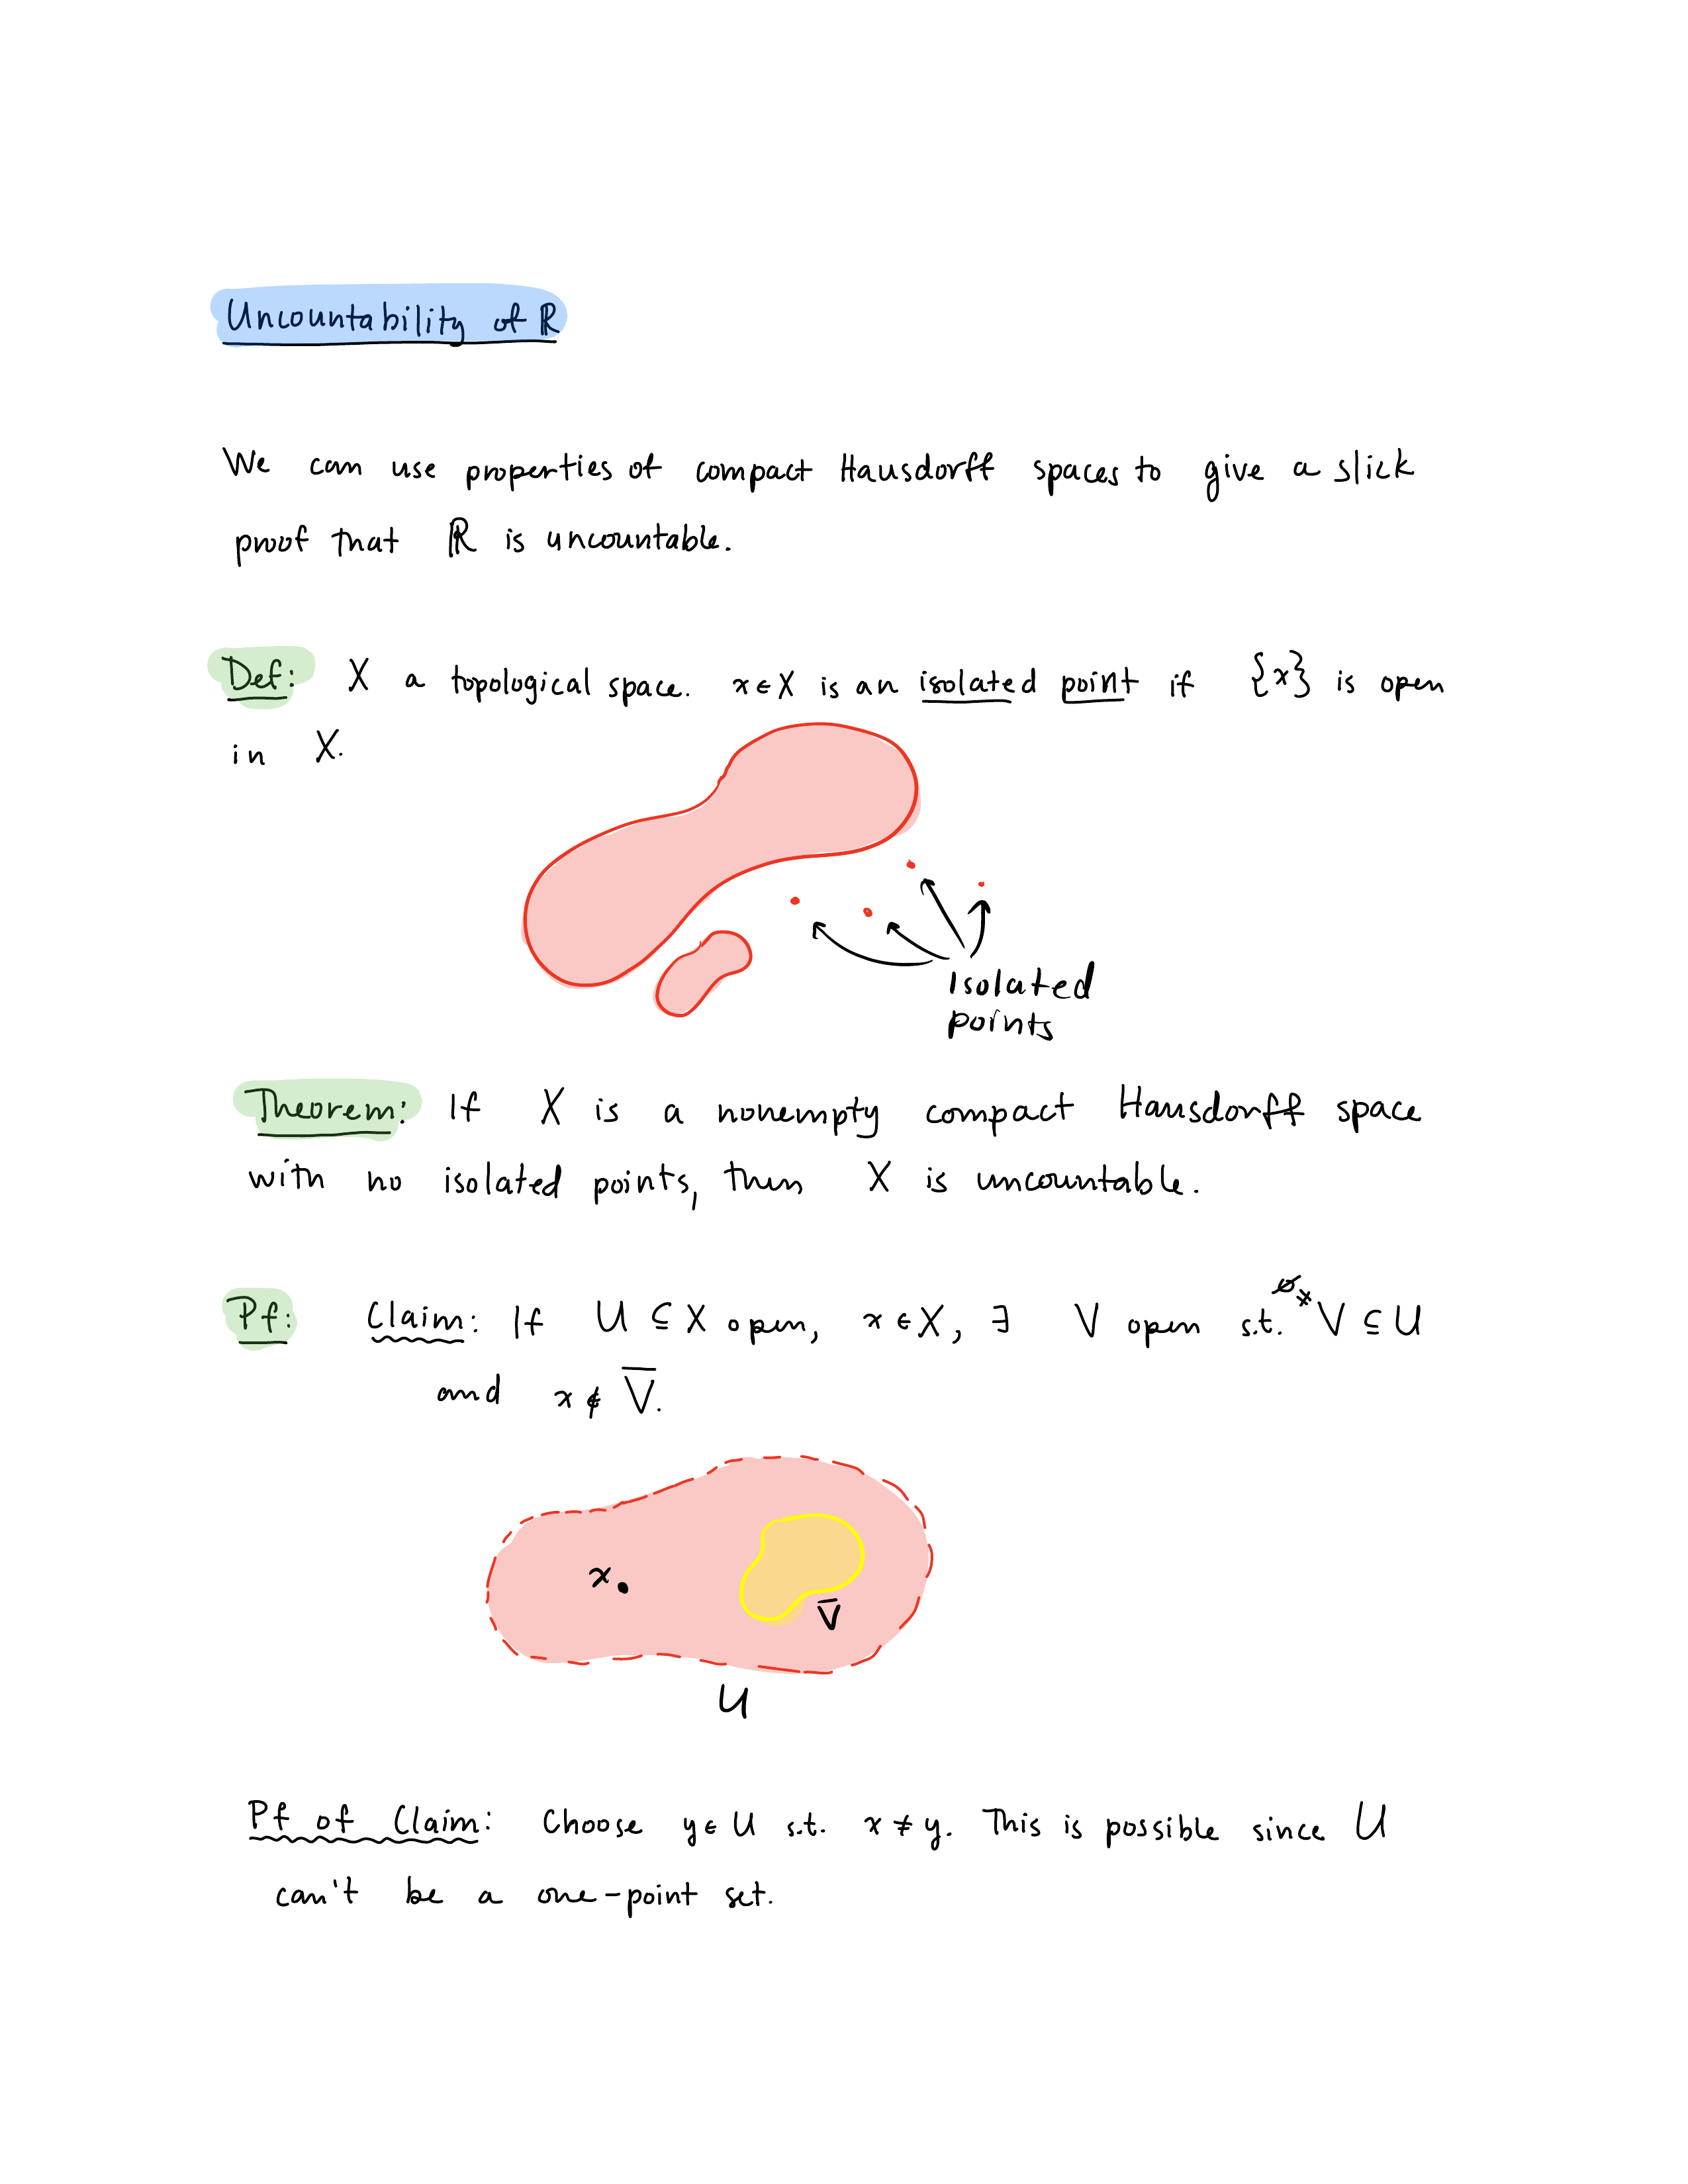 Uncountability of ℝ
We can use properties of compact Hausdorff spaces to give a slick
proof that ℝ is uncountable.
Def: X a topological space. x ∈ X is an isolated point if {x} is open
in X.
Isolated
points
Theorem: If X is a nonempty compact Hausdorff space
with no isolated points, then X is uncountable.
Pf: Claim: If U ⊆ X open, x ∈ X, ∃ V open s.t. ∅ ≠ V ⊆ U
and x ∉ V̅.
x
V̅
U
Pf of Claim: Choose y ∈ U s.t. x ≠ y. This is possible since U
can't be a one-point set.